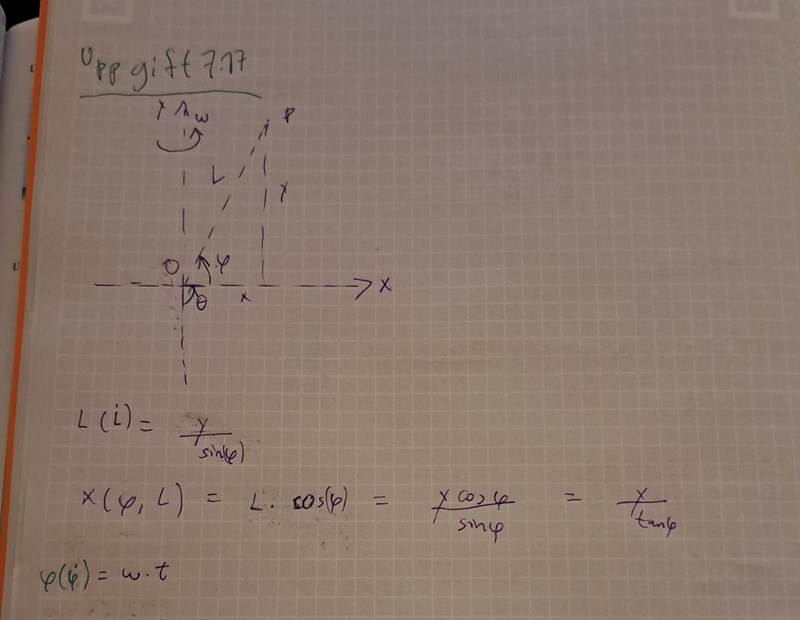 Uppgift 7.17
Y ω P
L Y
O φ
θ x X
L(i) = y/sin(φ)
x(φ, L) = L · cos(φ) = y cosφ/sinφ = y/tanφ
φ(φ̇) = w · t